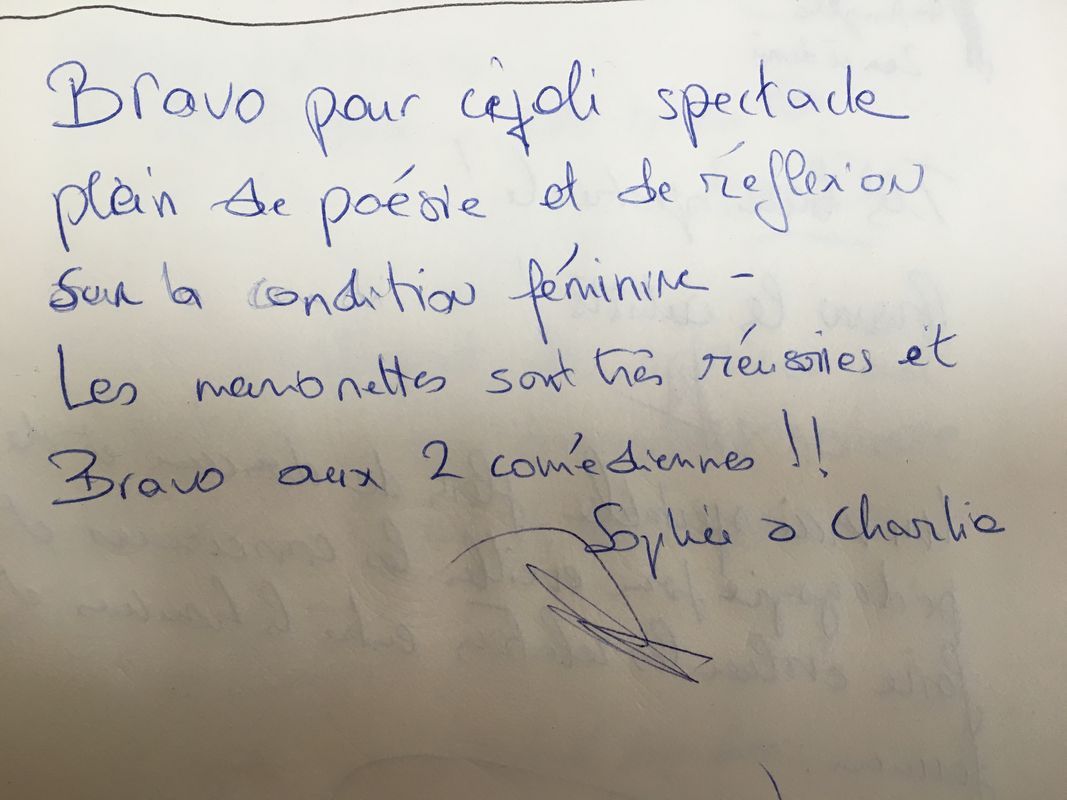 Bravo pour ce joli spectacle
plein de poésie et de réflexion
sur la condition féminine -
Les marionettes sont très réussies et
Bravo aux 2 comédiennes !!
Sophie & Charlie